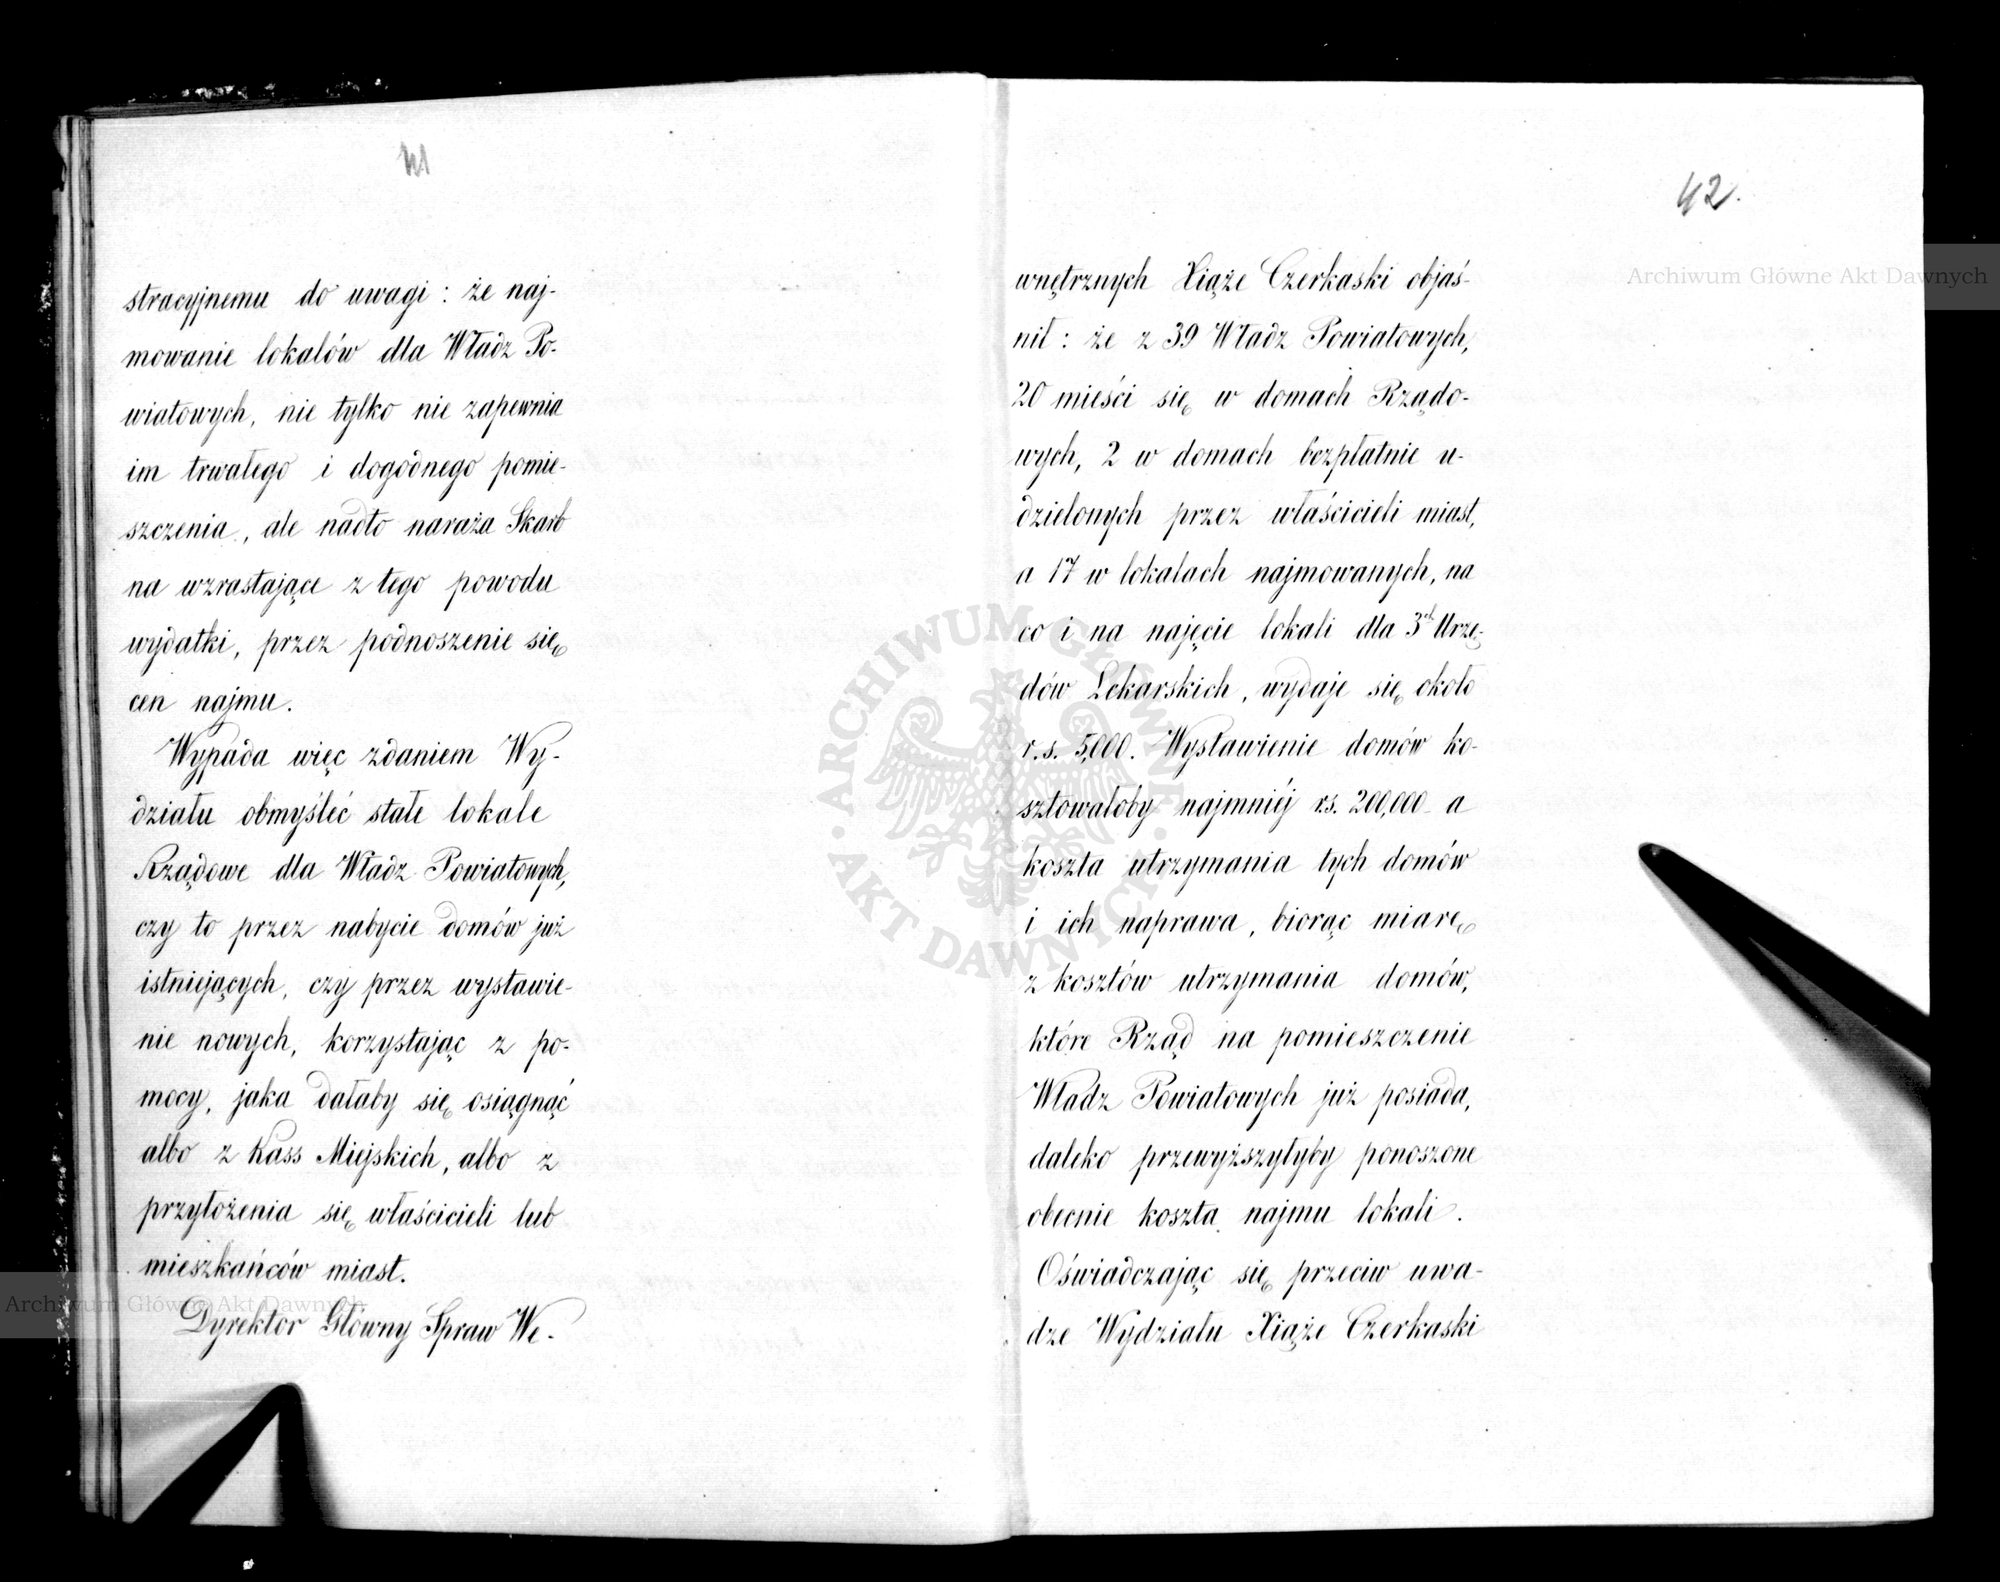 41
stracyjnemu do uwagi: że naj-
mowanie lokalów dla Władz Po-
wiatowych, nie tylko nie zapewnia
im trwałego i dogodnego pomie-
szczenia, ale nadto naraża Skarb
na wzrastające z tego powodu
wydatki, przez podnoszenie się
cen najmu.
Wypada więc zdaniem Wy-
działu obmyśleć stałe lokale
Rządowe dla Władz Powiatowych,
czy to przez nabycie domów już
istniejących, czy przez wystawie-
nie nowych, korzystając z po-
mocy, jaka dałaby się osiągnąć
albo z Kass Miejskich, albo z
przyłożenia się właścicieli lub
mieszkańców miast.
Dyrektor Główny Spraw We-
42.
wnętrznych Xiąże Czerkaski objaś-
nił: że z 39 Władz Powiatowych,
20 mieści się w domach Rządo-
wych, 2 w domach bezpłatnie u-
dzielonych przez właścicieli miast,
a 17 w lokalach najmowanych, na
co i na najęcie lokali dla 3ch Urzę-
dów Lekarskich, wydaje się około
r.s. 5,000. Wystawienie domów ko-
sztowałoby najmniéj rs. 200,000 a
koszta utrzymania tych domów
i ich naprawa, biorąc miarę
z kosztów utrzymania domów,
które Rząd na pomieszczenie
Władz Powiatowych już posiada,
daleko przewyższyłyby ponoszone
obecnie koszta najmu lokali.
Oświadczając się przeciw uwa-
dze Wydziału Xiąże Czerkaski
Archiwum Główne Akt Dawnych
Archiwum Główne Akt Dawnych
ARCHIWUM GŁÓWNE
AKT DAWNYCH